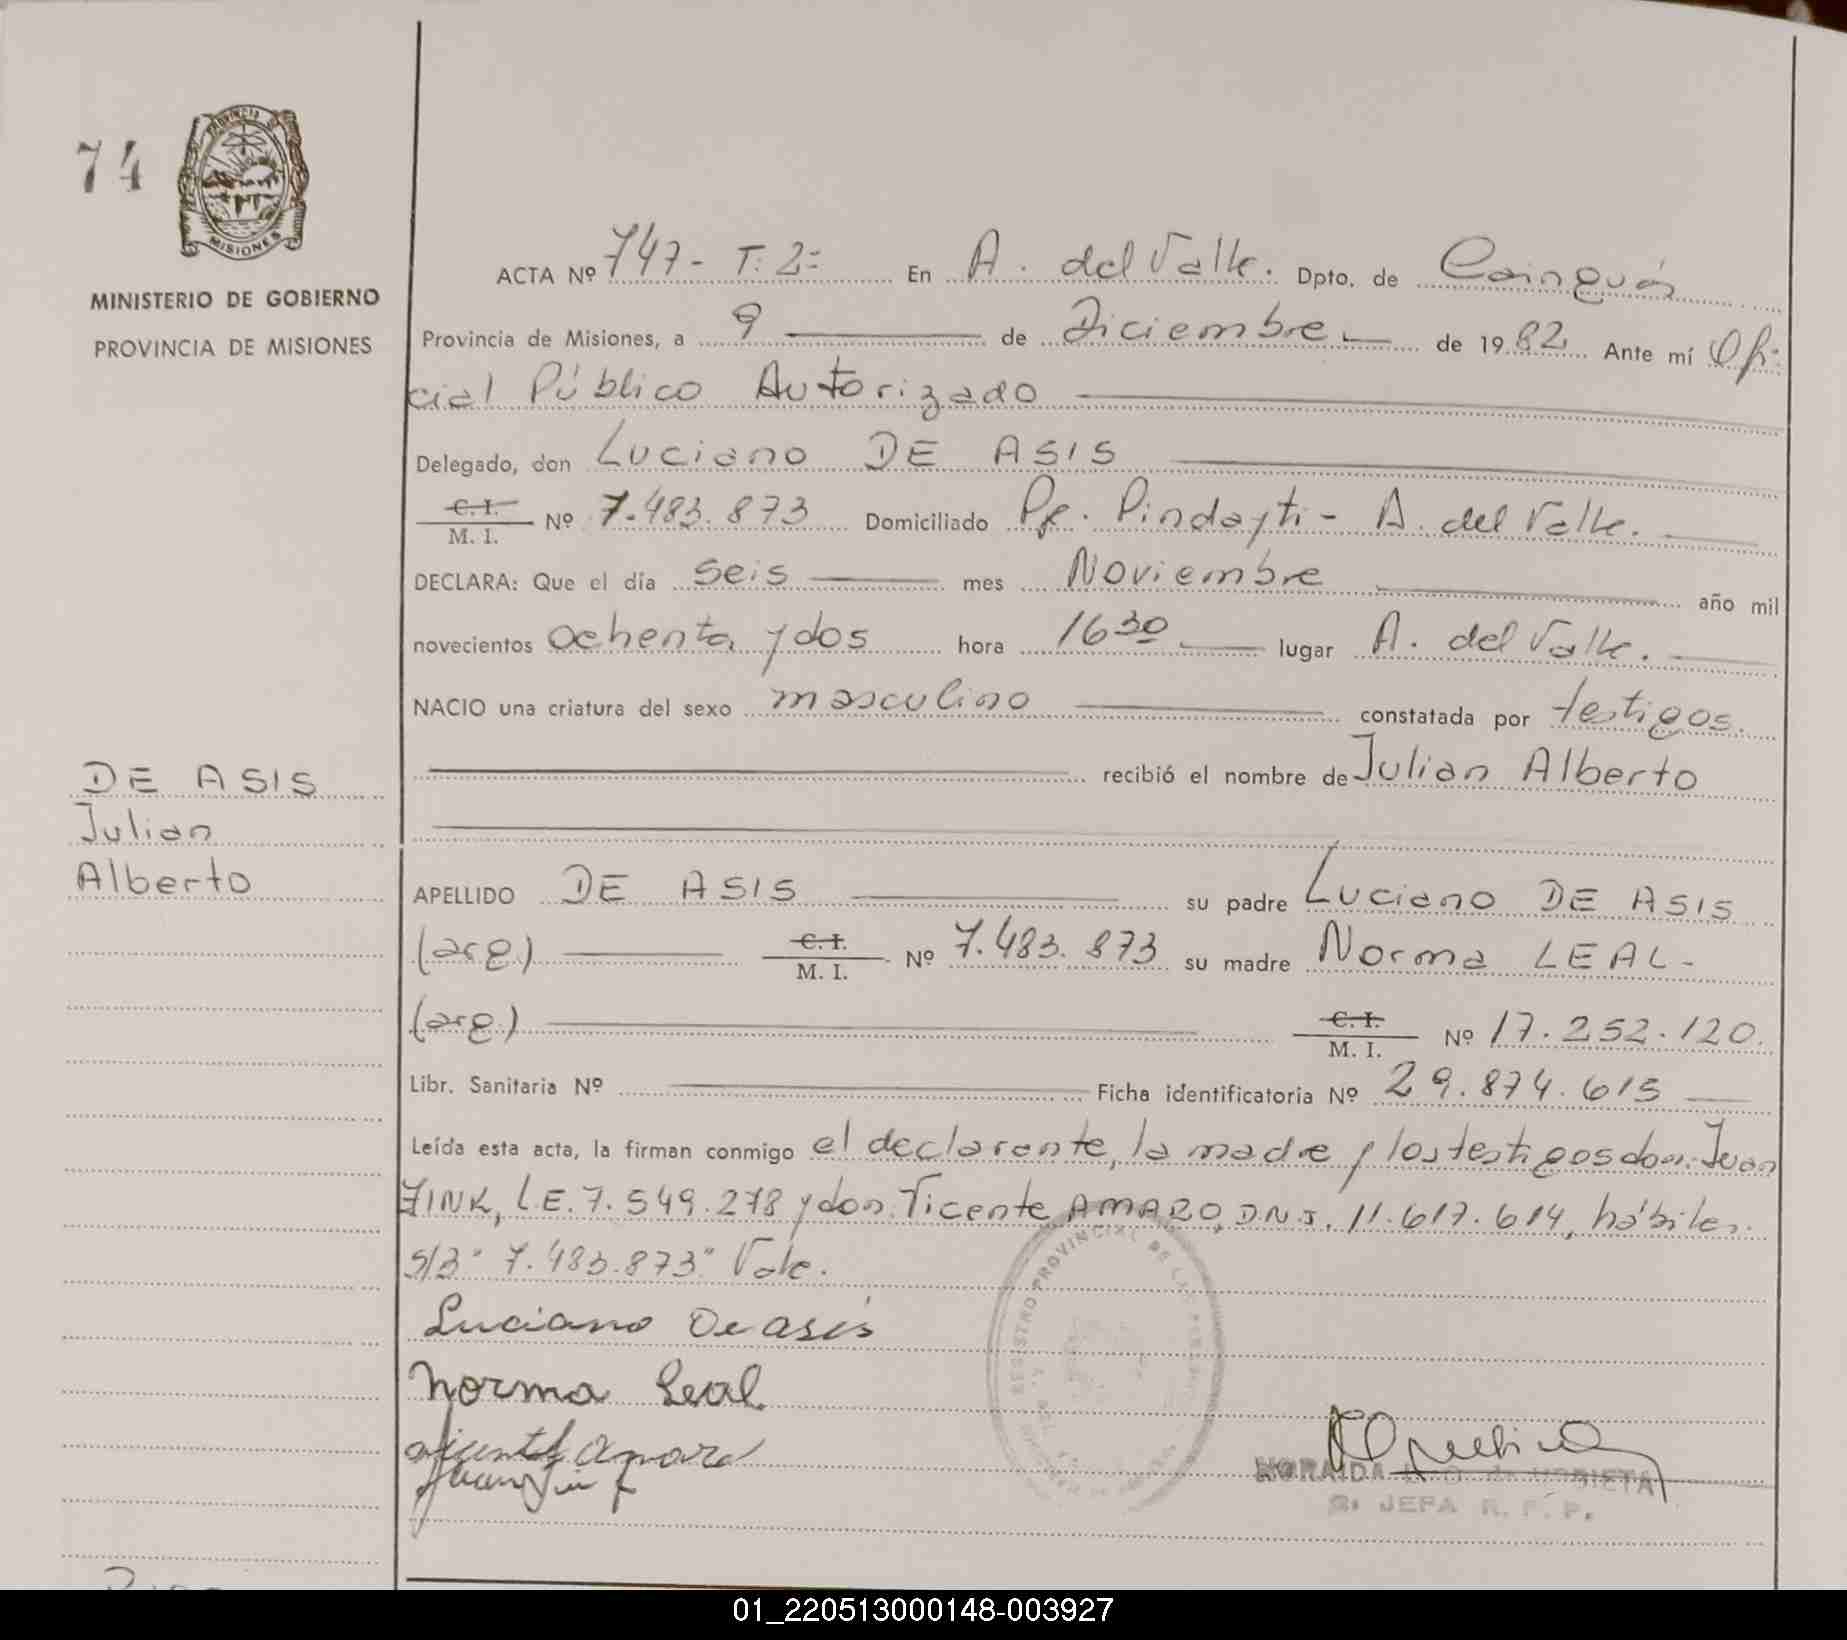 74
PROVINCIA DE
MISIONES
MINISTERIO DE GOBIERNO
PROVINCIA DE MISIONES
ACTA Nº 747- T: 2= En A. del Valle. Dpto. de Cainguás
Provincia de Misiones, a 9 de Diciembre de 1982 Ante mí Ofi-
cial Público Autorizado
Delegado, don Luciano DE ASIS
C. I. / M. I. Nº 7.483.873 Domiciliado Pje. Pindayti - A. del Valle.
DECLARA: Que el día seis mes Noviembre año mil
novecientos ochenta y dos hora 16 30 lugar A. del Valle.
NACIO una criatura del sexo masculino constatada por testigos.
recibió el nombre de Julian Alberto
DE ASIS
Julian
Alberto
APELLIDO DE ASIS su padre Luciano DE ASIS
(arg.) C. I. / M. I. Nº 7.483.873 su madre Norma LEAL-
(arg.) C. I. / M. I. Nº 17.252.120.
Libr. Sanitaria Nº Ficha identificatoria Nº 29.874.615
Leída esta acta, la firman conmigo el declarante, la madre y los testigos don: Juan
FINK, L.E. 7.549.278 y don: Vicente AMARO, D.N.I. 11.617.614, hábiles.
S/B "7.483.873" Vale.
Luciano De asis
Norma Leal
Vicente Amaro
Juan Fink
REGISTRO PROVINCIAL DE LAS PERSONAS
NORAIDA de URBIETA
JEFA R. P. P.
01_220513000148-003927